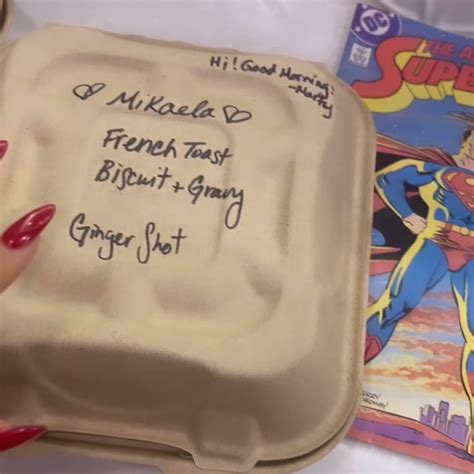 Hi! Good Morning!
-Marty
♡ Mikaela ♡
French Toast
Biscuit + Gravy
Ginger Shot
DC
THE A
SUPE